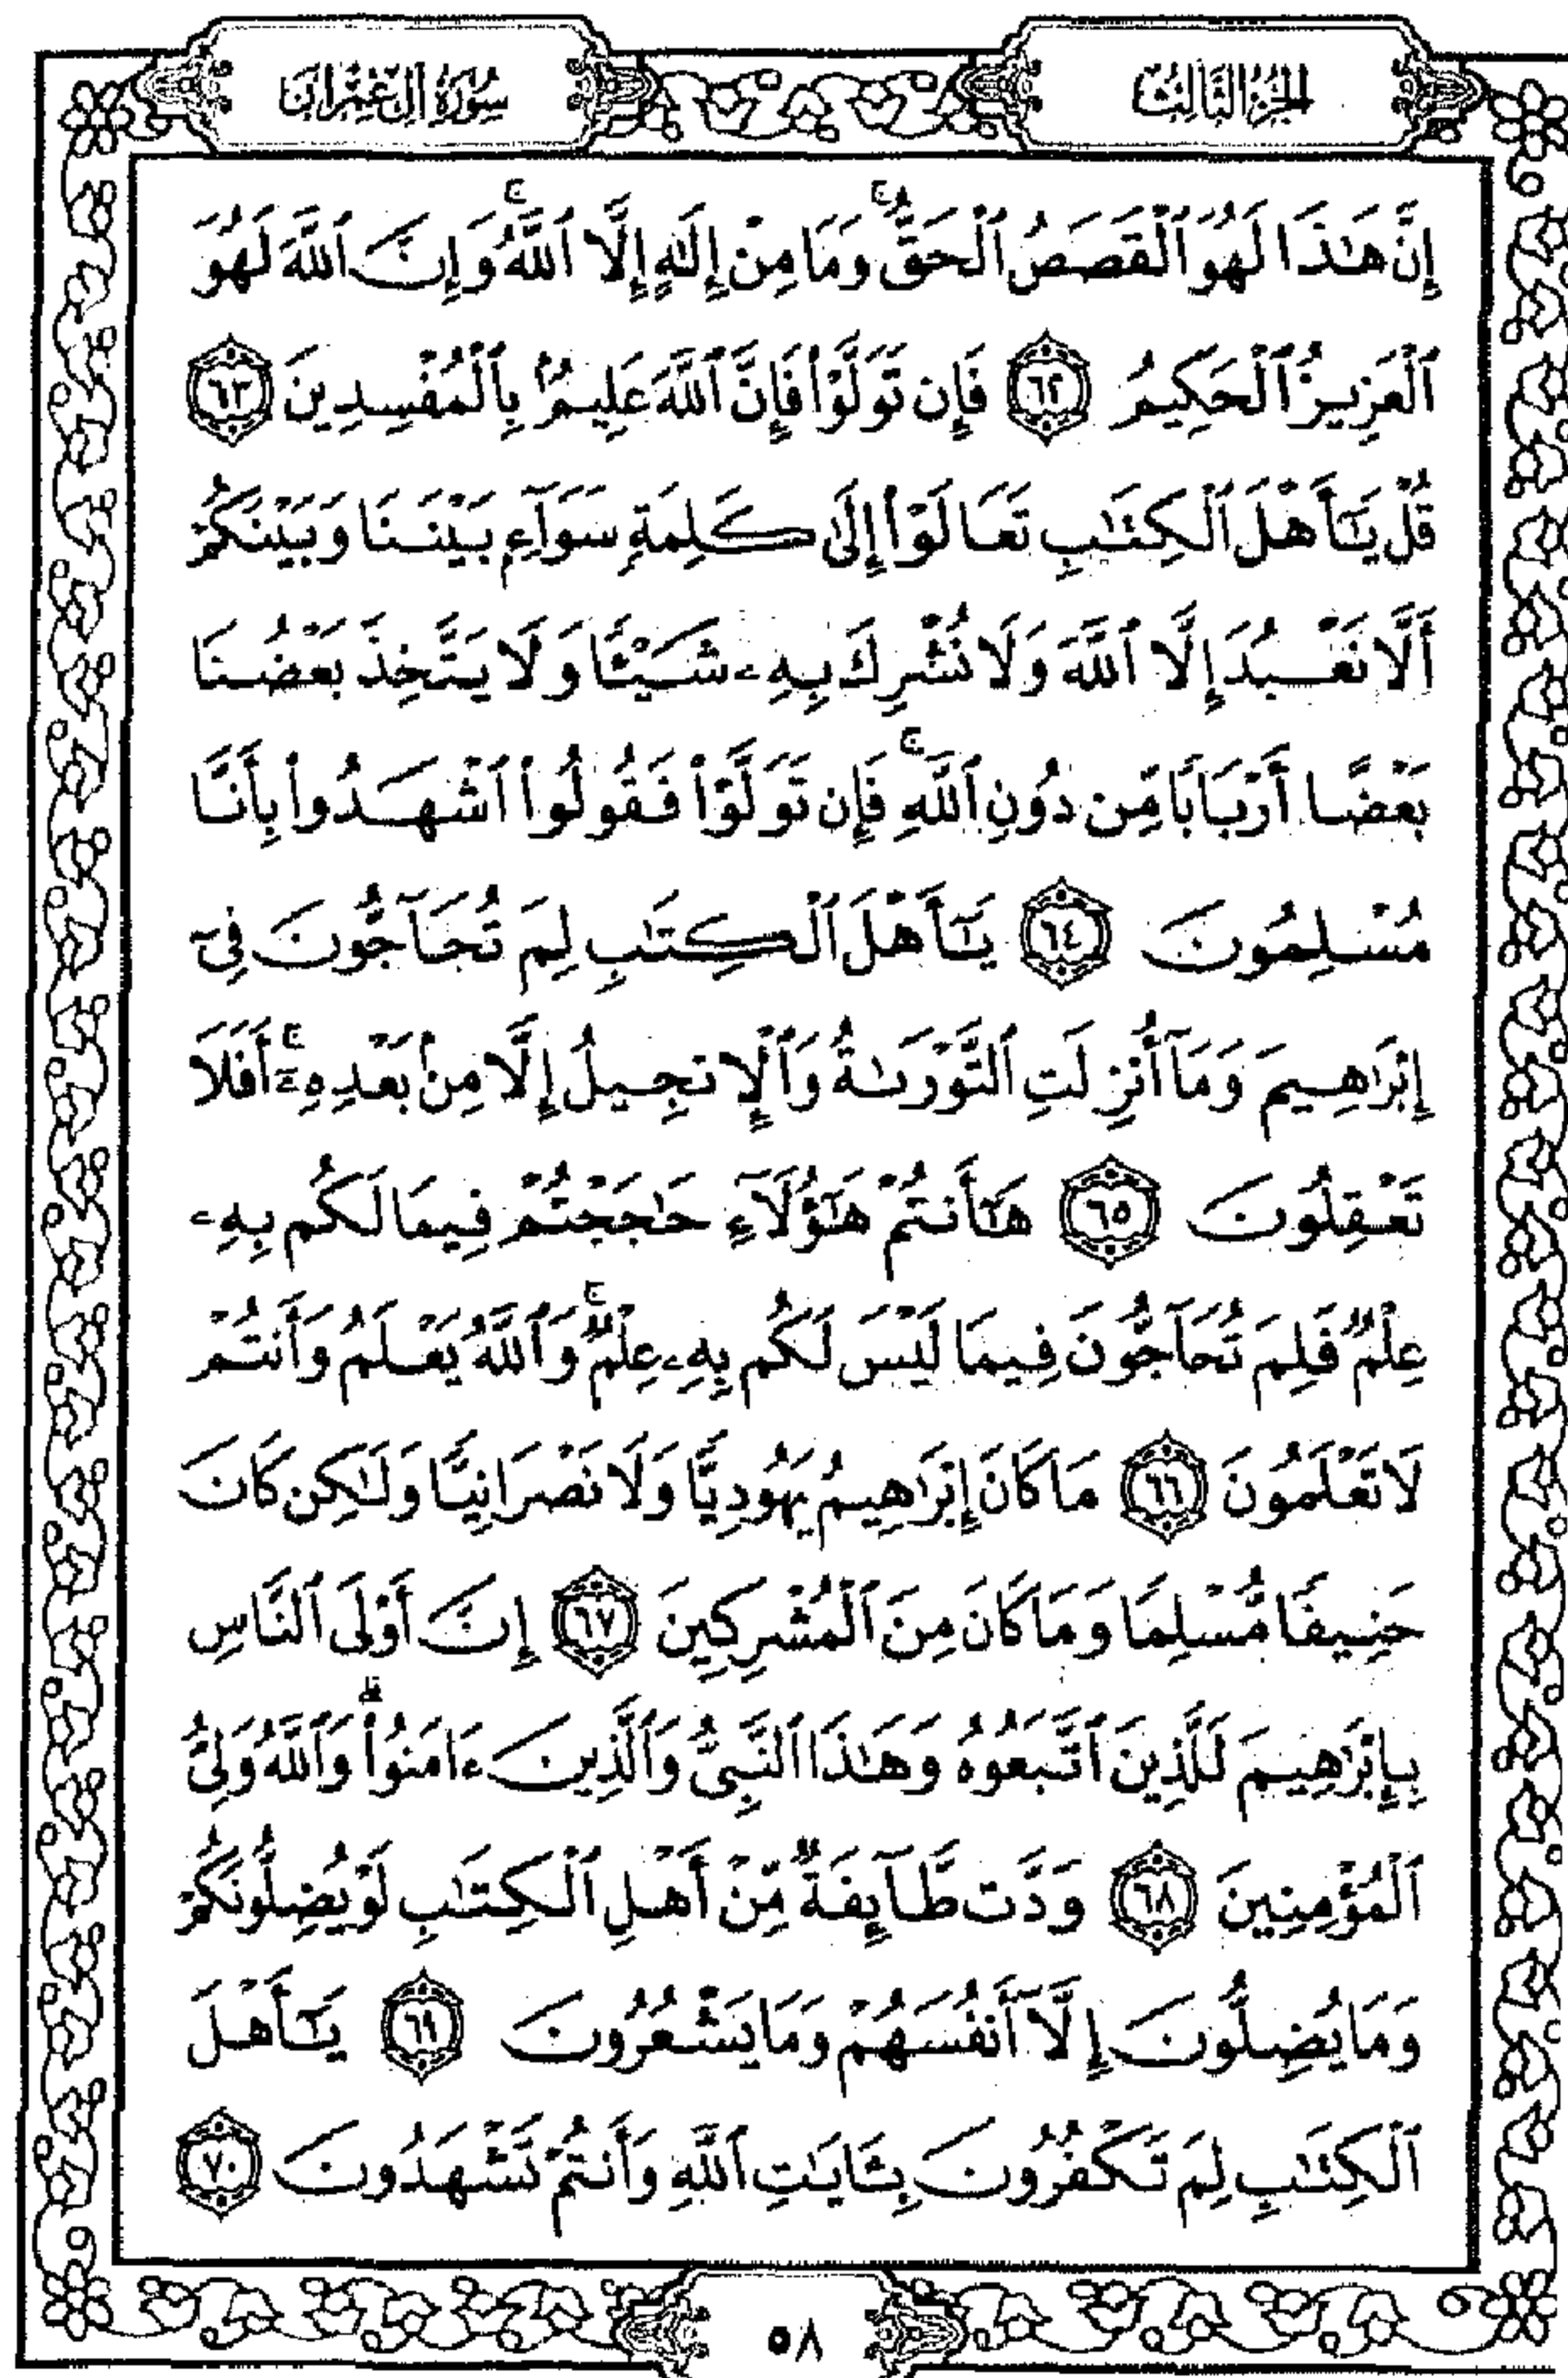 الجزء الثالث
سورة آل عمران
إِنَّ هَـٰذَا لَهُوَ ٱلْقَصَصُ ٱلْحَقُّ ۚ وَمَا مِنْ إِلَـٰهٍ إِلَّا ٱللَّهُ ۚ وَإِنَّ ٱللَّهَ لَهُوَ
ٱلْعَزِيزُ ٱلْحَكِيمُ ٦٢ فَإِن تَوَلَّوْا۟ فَإِنَّ ٱللَّهَ عَلِيمٌۢ بِٱلْمُفْسِدِينَ ٦٣
قُلْ يَـٰٓأَهْلَ ٱلْكِتَـٰبِ تَعَالَوْا۟ إِلَىٰ كَلِمَةٍ سَوَآءٍۭ بَيْنَنَا وَبَيْنَكُمْ
أَلَّا نَعْبُدَ إِلَّا ٱللَّهَ وَلَا نُشْرِكَ بِهِۦ شَيْـًٔا وَلَا يَتَّخِذَ بَعْضُنَا
بَعْضًا أَرْبَابًا مِّن دُونِ ٱللَّهِ ۚ فَإِن تَوَلَّوْا۟ فَقُولُوا۟ ٱشْهَدُوا۟ بِأَنَّا
مُسْلِمُونَ ٦٤ يَـٰٓأَهْلَ ٱلْكِتَـٰبِ لِمَ تُحَآجُّونَ فِىٓ
إِبْرَٰهِيمَ وَمَآ أُنزِلَتِ ٱلتَّوْرَىٰةُ وَٱلْإِنجِيلُ إِلَّا مِنۢ بَعْدِهِۦٓ ۚ أَفَلَا
تَعْقِلُونَ ٦٥ هَـٰٓأَنتُمْ هَـٰٓؤُلَآءِ حَـٰجَجْتُمْ فِيمَا لَكُم بِهِۦ
عِلْمٌ فَلِمَ تُحَآجُّونَ فِيمَا لَيْسَ لَكُم بِهِۦ عِلْمٌ ۚ وَٱللَّهُ يَعْلَمُ وَأَنتُمْ
لَا تَعْلَمُونَ ٦٦ مَا كَانَ إِبْرَٰهِيمُ يَهُودِيًّا وَلَا نَصْرَانِيًّا وَلَـٰكِن كَانَ
حَنِيفًا مُّسْلِمًا وَمَا كَانَ مِنَ ٱلْمُشْرِكِينَ ٦٧ إِنَّ أَوْلَى ٱلنَّاسِ
بِإِبْرَٰهِيمَ لَلَّذِينَ ٱتَّبَعُوهُ وَهَـٰذَا ٱلنَّبِىُّ وَٱلَّذِينَ ءَامَنُوا۟ ۗ وَٱللَّهُ وَلِىُّ
ٱلْمُؤْمِنِينَ ٦٨ وَدَّت طَّآئِفَةٌ مِّنْ أَهْلِ ٱلْكِتَـٰبِ لَوْ يُضِلُّونَكُمْ
وَمَا يُضِلُّونَ إِلَّآ أَنفُسَهُمْ وَمَا يَشْعُرُونَ ٦٩ يَـٰٓأَهْلَ
ٱلْكِتَـٰبِ لِمَ تَكْفُرُونَ بِـَٔايَـٰتِ ٱللَّهِ وَأَنتُمْ تَشْهَدُونَ ٧٠
٥٨